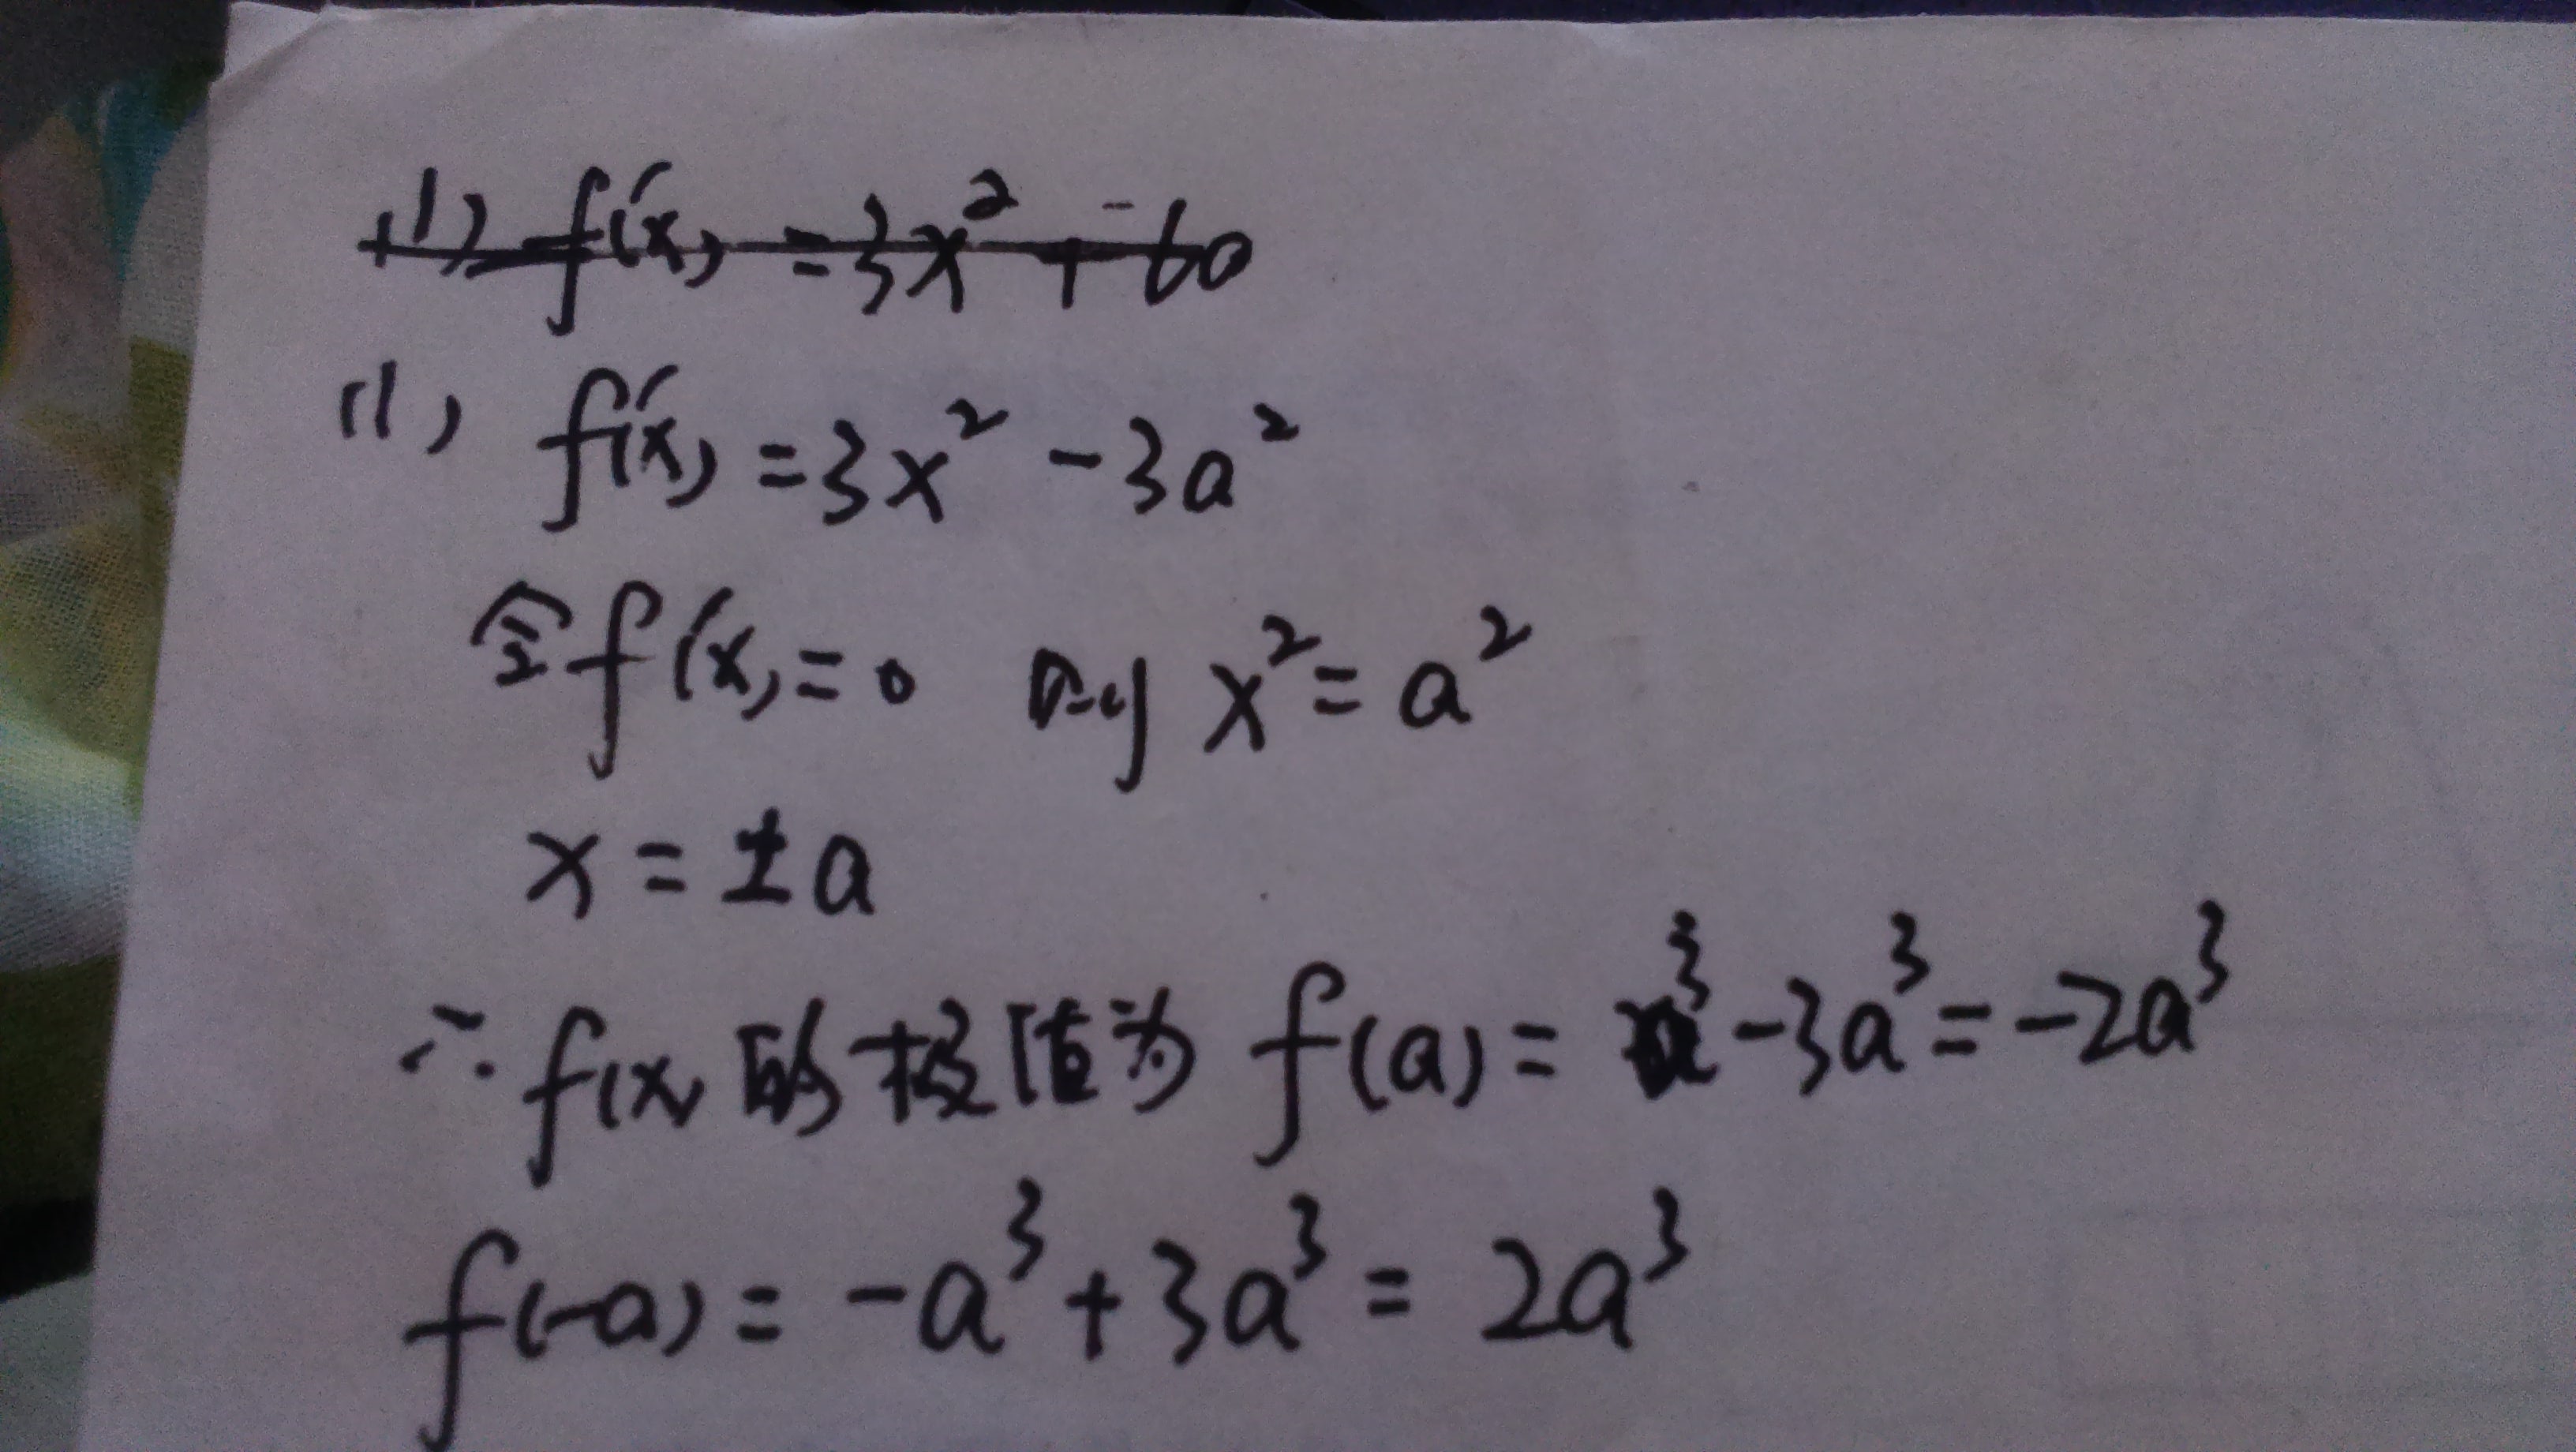 (1) f'(x) = 3x² + 60
(1) f'(x) = 3x² - 3a²
令f'(x) = 0 则 x² = a²
x = ±a
∴ f(x)的极值为 f(a) = a³ - 3a³ = -2a³
f(-a) = -a³ + 3a³ = 2a³